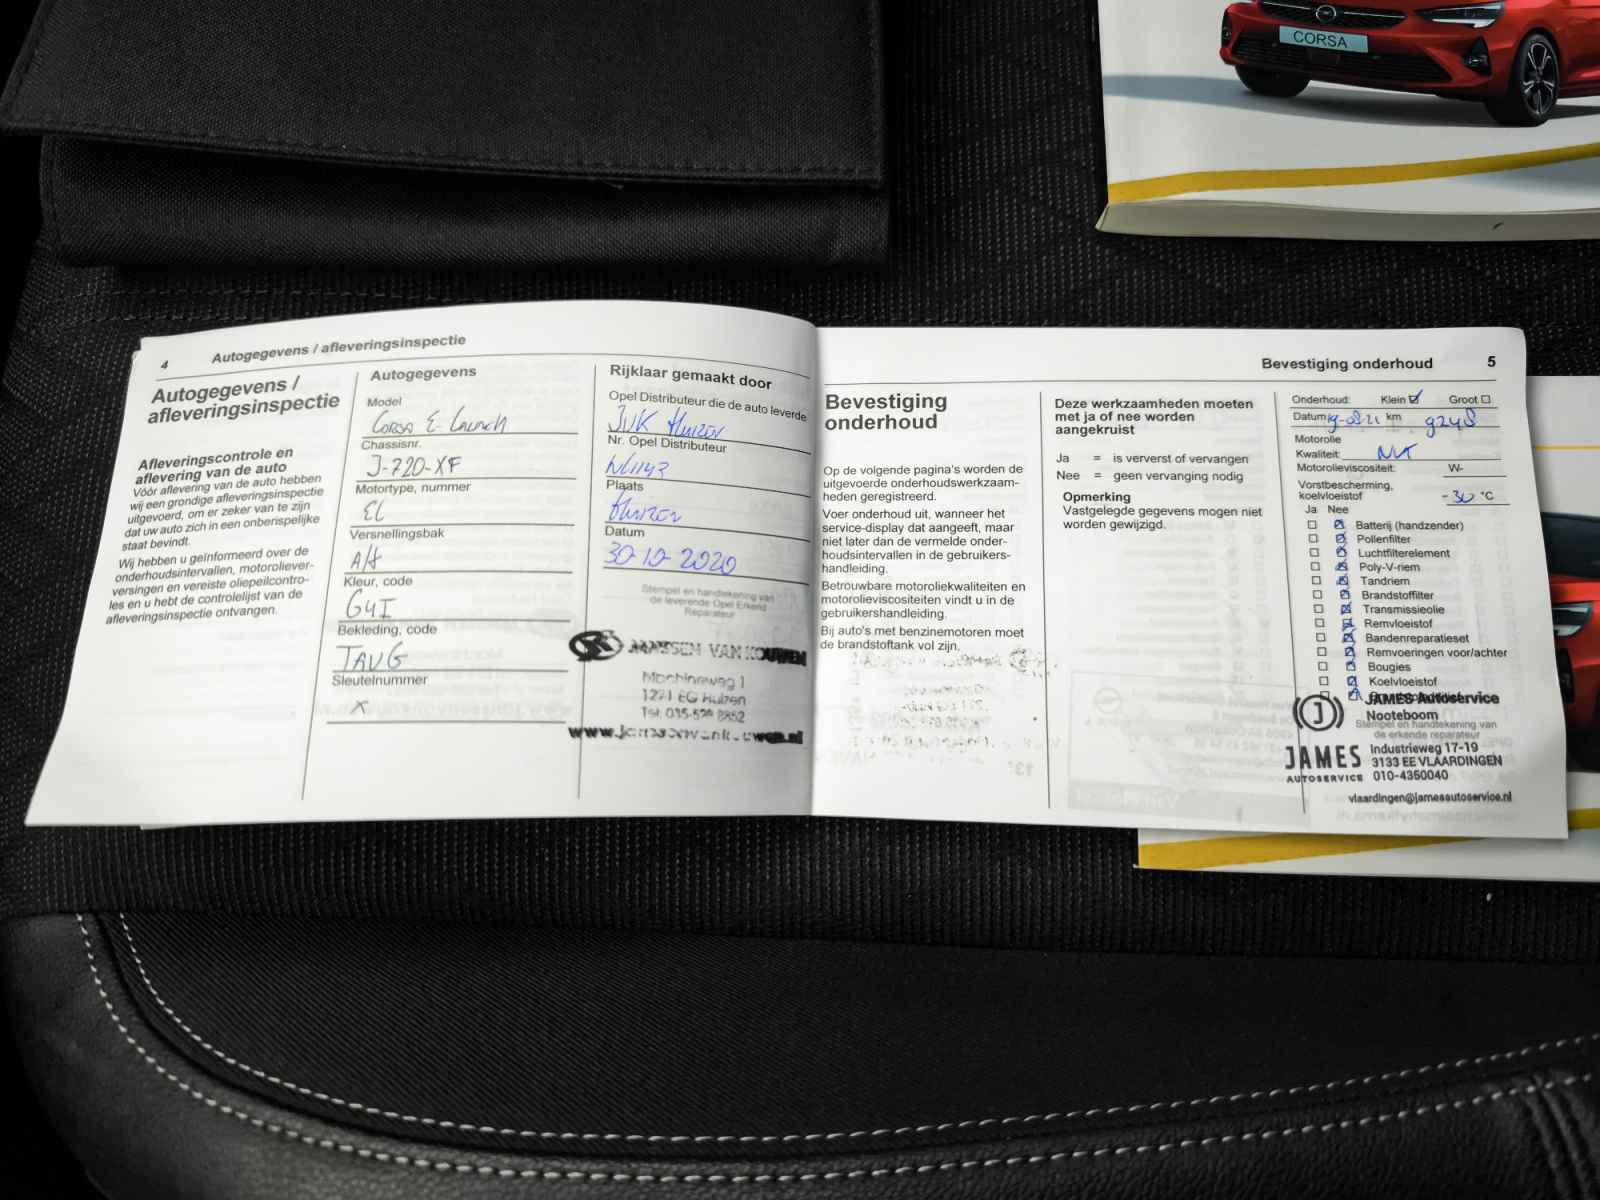 CORSA
4 Autogegevens / afleveringsinspectie
Autogegevens /
afleveringsinspectie
Afleveringscontrole en
aflevering van de auto
Vóór aflevering van de auto hebben
wij een grondige afleveringsinspectie
uitgevoerd, om er zeker van te zijn
dat uw auto zich in een onberispelijke
staat bevindt.
Wij hebben u geïnformeerd over de
onderhoudsintervallen, motoroliever-
versingen en vereiste oliepeilcontro-
les en u hebt de controlelijst van de
afleveringsinspectie ontvangen.
Autogegevens
Model
Corsa E-Launch
Chassisnr.
J-720-XF
Motortype, nummer
EL
Versnellingsbak
A/t
Kleur, code
G4I
Bekleding, code
TAUG
Sleutelnummer
x
Rijklaar gemaakt door
Opel Distributeur die de auto leverde
JVK Huizen
Nr. Opel Distributeur
Plaats
Huizen
Datum
30-10-2020
Stempel en handtekening van
de leverende Opel Erkend
Reparateur
JANSSEN VAN KOUWEN
Machineweg 1
1271 EG Huizen
www.janssenvankouwen.nl
Bevestiging onderhoud 5
Bevestiging
onderhoud
Op de volgende pagina's worden de
uitgevoerde onderhoudswerkzaam-
heden geregistreerd.
Voer onderhoud uit, wanneer het
service-display dat aangeeft, maar
niet later dan de vermelde onder-
houdsintervallen in de gebruikers-
handleiding.
Betrouwbare motoroliekwaliteiten en
motorolieviscositeiten vindt u in de
gebruikershandleiding.
Bij auto's met benzinemotoren moet
de brandstoftank vol zijn.
Deze werkzaamheden moeten
met ja of nee worden
aangekruist
Ja = is ververst of vervangen
Nee = geen vervanging nodig
Opmerking
Vastgelegde gegevens mogen niet
worden gewijzigd.
Onderhoud: Klein Groot
Datum 19-08-21 km 9248
Motorolie
Kwaliteit: NVT
Motorolieviscositeit: W-
Vorstbescherming,
koelvloeistof - 30 °C
Ja Nee
Batterij (handzender)
Pollenfilter
Luchtfilterelement
Poly-V-riem
Tandriem
Brandstoffilter
Transmissieolie
Remvloeistof
Bandenreparatieset
Remvoeringen voor/achter
Bougies
Koelvloeistof
JAMES Autoservice
Nooteboom
Stempel en handtekening van
de erkende reparateur
Industrieweg 17-19
3133 EE VLAARDINGEN
010-4350040
JAMES
AUTOSERVICE
vlaardingen@jamesautoservice.nl